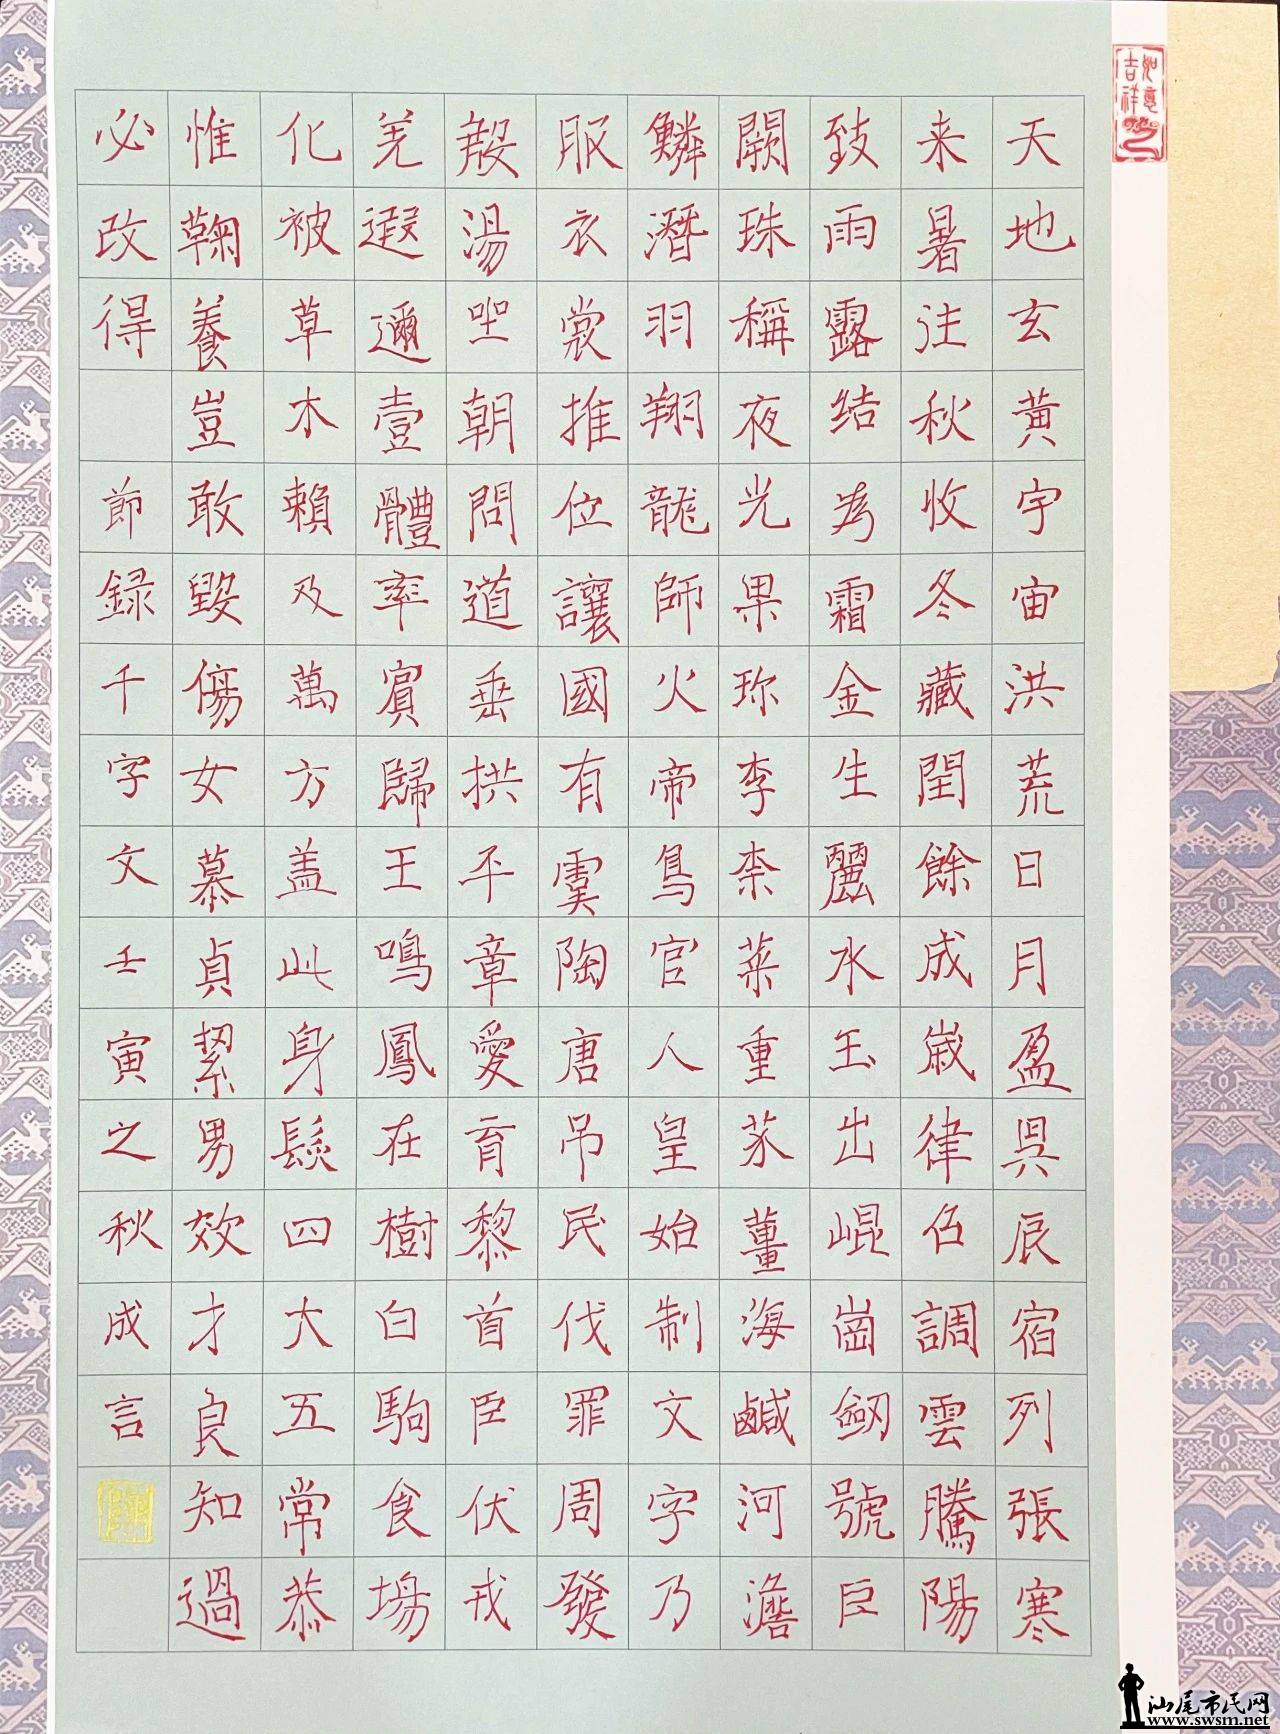 如意吉祥
天地玄黄宇宙洪荒日月盈昃辰宿列張寒
来暑往秋收冬藏閏餘成歲律召調雲騰陽
致雨露结為霜金生麗水玉出崐崗劒號巨
闕珠稱夜光果珎李柰菜重芥薑海鹹河澹
鱗潛羽翔龍師火帝鳥官人皇始制文字乃
服衣裳推位讓國有虞陶唐吊民伐罪周發
殷湯坐朝問道垂拱平章愛育黎首臣伏戎
羌遐邇壹體率賓歸王鳴鳳在樹白駒食場
化被草木賴及萬方盖此身髮四大五常恭
惟鞠養豈敢毀傷女慕貞絜男效才良知過
必改得 節録千字文壬寅之秋成言
汕尾市民网
www.swsm.net